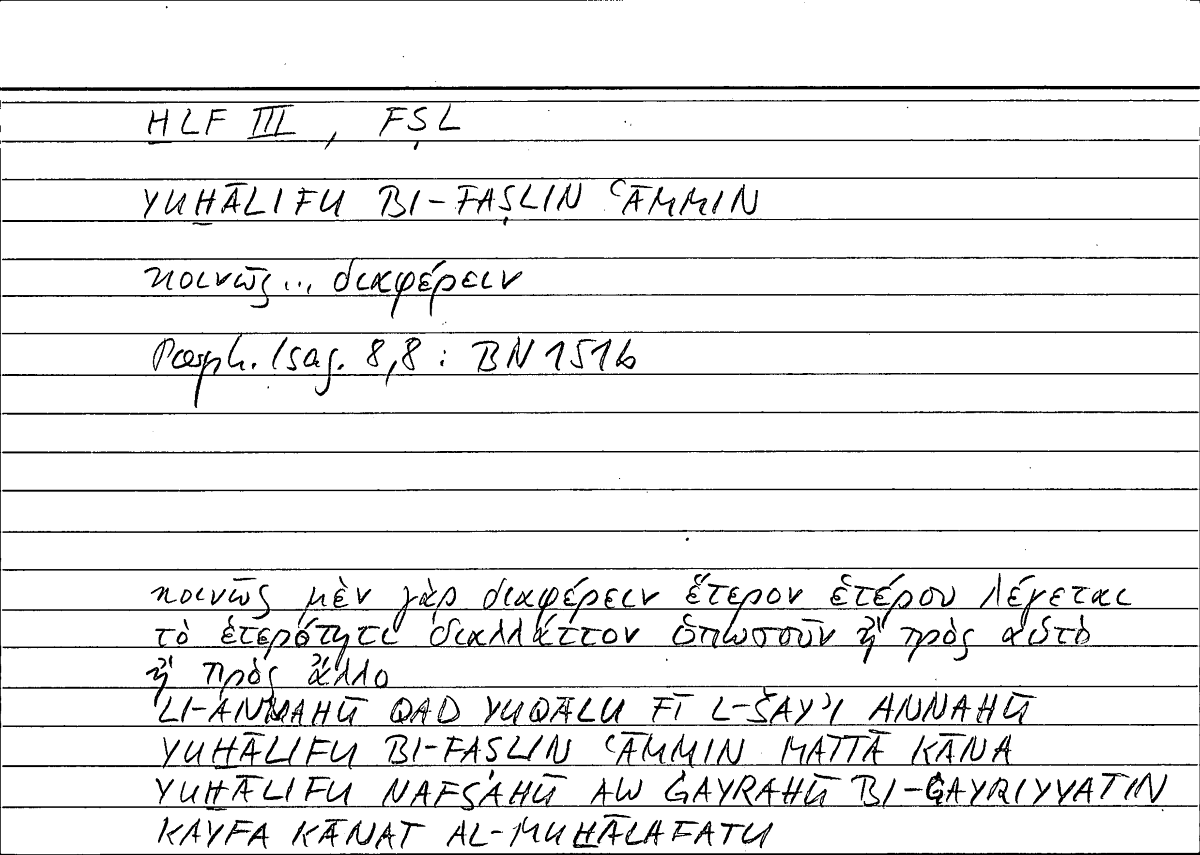 H̱LF III, FṢL
YUH̱ĀLIFU BI-FAṢLIN ʿĀMMIN
κοινῶς... διαφέρειν
Porph. Isag. 8,8 : BN 151b
κοινῶς μὲν γὰρ διαφέρειν ἕτερον ἑτέρου λέγεται
τὸ ἑτερότητι διαλλάττον ὁπωσοῦν ἢ πρὸς αὑτὸ
ἢ πρὸς ἄλλο
LI-ANNAHŪ QAD YUQĀLU FĪ L-ŠAYʾI ANNAHŪ
YUH̱ĀLIFU BI-FAṢLIN ʿĀMMIN MATTĀ KĀNA
YUH̱ĀLIFU NAFSAHŪ AW ĠAYRAHŪ BI-ĠAYRIYYATIN
KAYFA KĀNAT AL-MUH̱ĀLAFATU